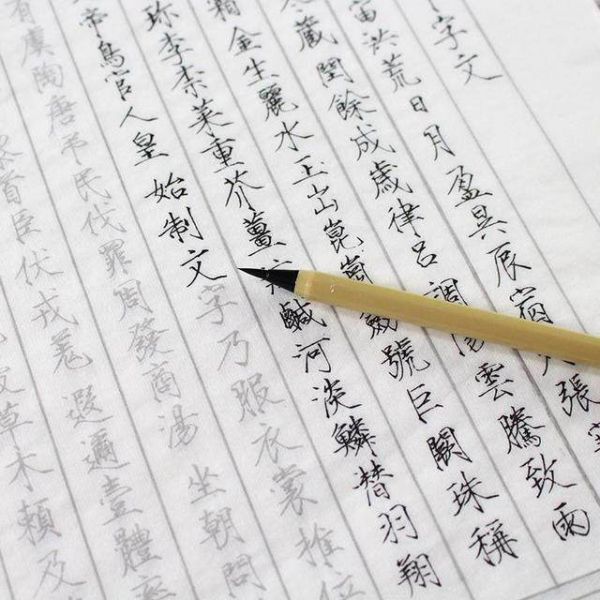 字文
宙洪荒日月盈昃辰宿張
藏閏餘成歲律呂調陽雲騰致雨
金生麗水玉山崑崗劍號巨闕珠稱
珍李柰菜重芥薑鹹河淡鱗潛羽翔
帝鳥官人皇始制文字乃服衣裳推位
有虞陶唐弔民伐罪周發殷湯坐朝問
首臣伏戎羌遐邇壹體率
草木賴及